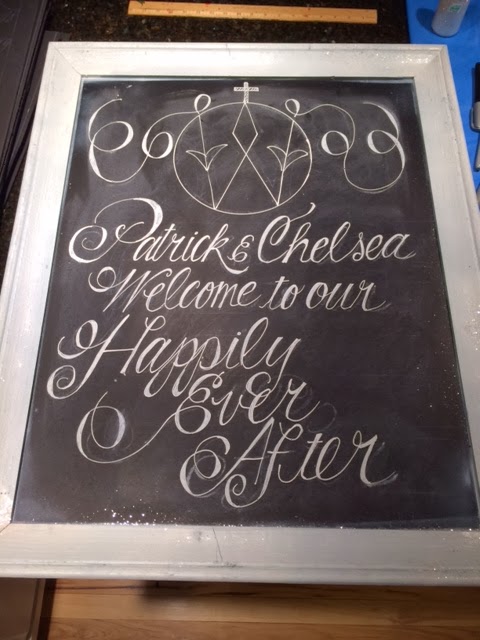 Patrick & Chelsea
Welcome to our
Happily
Ever
After